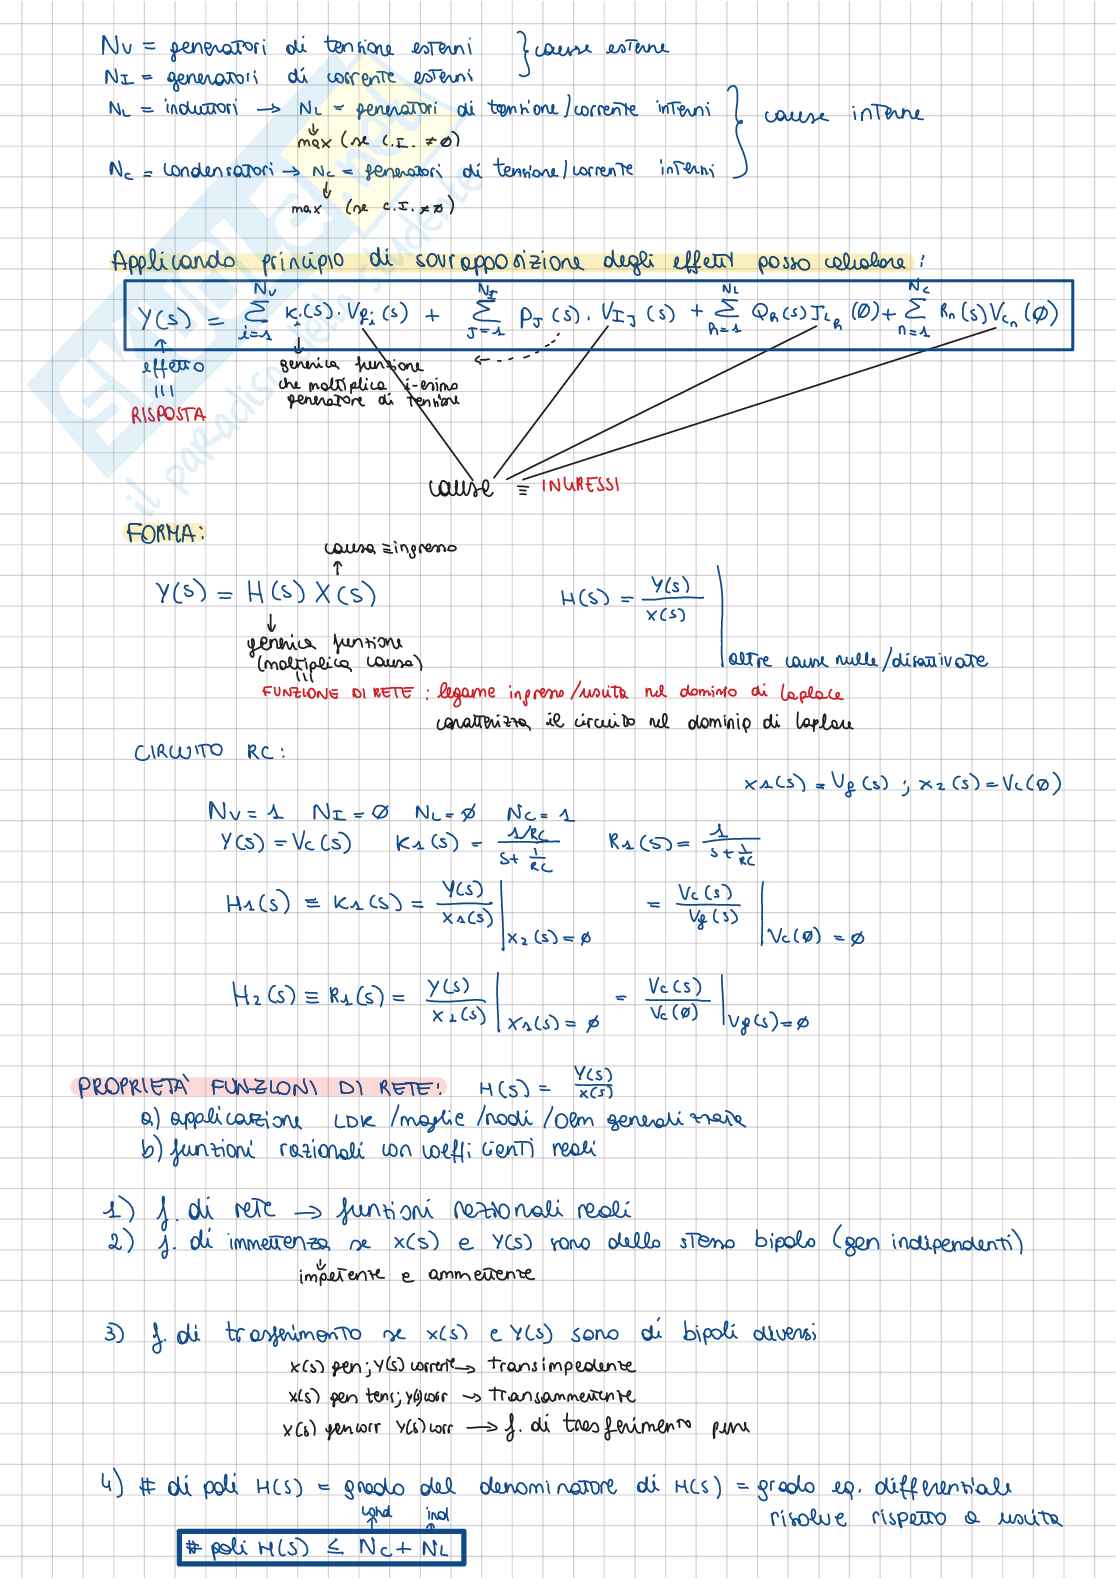 Nv = generatori di tensione esterni } cause esterne
NI = generatori di corrente esterni
NL = induttori → NL = generatori di tensione/corrente interni } cause interne
max (se C.I. ≠ ∅)
Nc = condensatori → Nc = generatori di tensione/corrente interni
max (se C.I. ≠ ∅)
Applicando principio di sovrapposizione degli effetti posso calcolare:
Y(s) = Σ_{i=1}^{Nv} Ki(s)·Vgi(s) + Σ_{J=1}^{NI} PJ(s)·VIJ(s) + Σ_{h=1}^{NL} Qh(s)JLh(∅) + Σ_{n=1}^{Nc} Rn(s)Vcn(∅)
effetto
RISPOSTA
generica funzione
che moltiplica i-esimo
generatore di tensione
cause ≡ INGRESSI
FORMA:
causa ≡ ingresso
Y(s) = H(s) X(s)
H(s) = Y(s)/X(s) | altre cause nulle/disattivate
generica funzione
(moltiplica causa)
FUNZIONE DI RETE : legame ingresso/uscita nel dominio di Laplace
caratterizza il circuito nel dominip di Laplace
CIRCUITO RC:
x1(s) = Vg(s) ; x2(s) = Vc(∅)
Nv = 1 NI = ∅ NL = ∅ Nc = 1
Y(s) = Vc(s) K1(s) = (1/RC)/(s + 1/RC) R1(s) = 1/(s + 1/RC)
H1(s) ≡ K1(s) = Y(s)/x1(s) | x2(s) = ∅ = Vc(s)/Vg(s) | Vc(∅) = ∅
H2(s) ≡ R1(s) = Y(s)/x2(s) | x1(s) = ∅ = Vc(s)/Vc(∅) | Vg(s) = ∅
PROPRIETÀ FUNZIONI DI RETE: H(s) = Y(s)/X(s)
a) applicazione LDK /maglie /nodi /Ohm generalizzata
b) funzioni razionali con coefficienti reali
1) f. di rete → funzioni razionali reali
2) f. di immettenza se X(s) e Y(s) sono dello stesso bipolo (gen indipendenti)
impetenze e ammettenze
3) f. di trasferimento se x(s) e Y(s) sono di bipoli diversi
x(s) gen; Y(s) corrente → transimpedenze
x(s) gen tens; y(s) corr → transammettenze
x(s) gen corr Y(s) corr → f. di trasferimento pure
4) # di poli H(s) = grado del denominatore di H(s) = grado eq. differenziale
risolve rispetto a uscita
cond ind
# poli H(s) ≤ Nc + NL